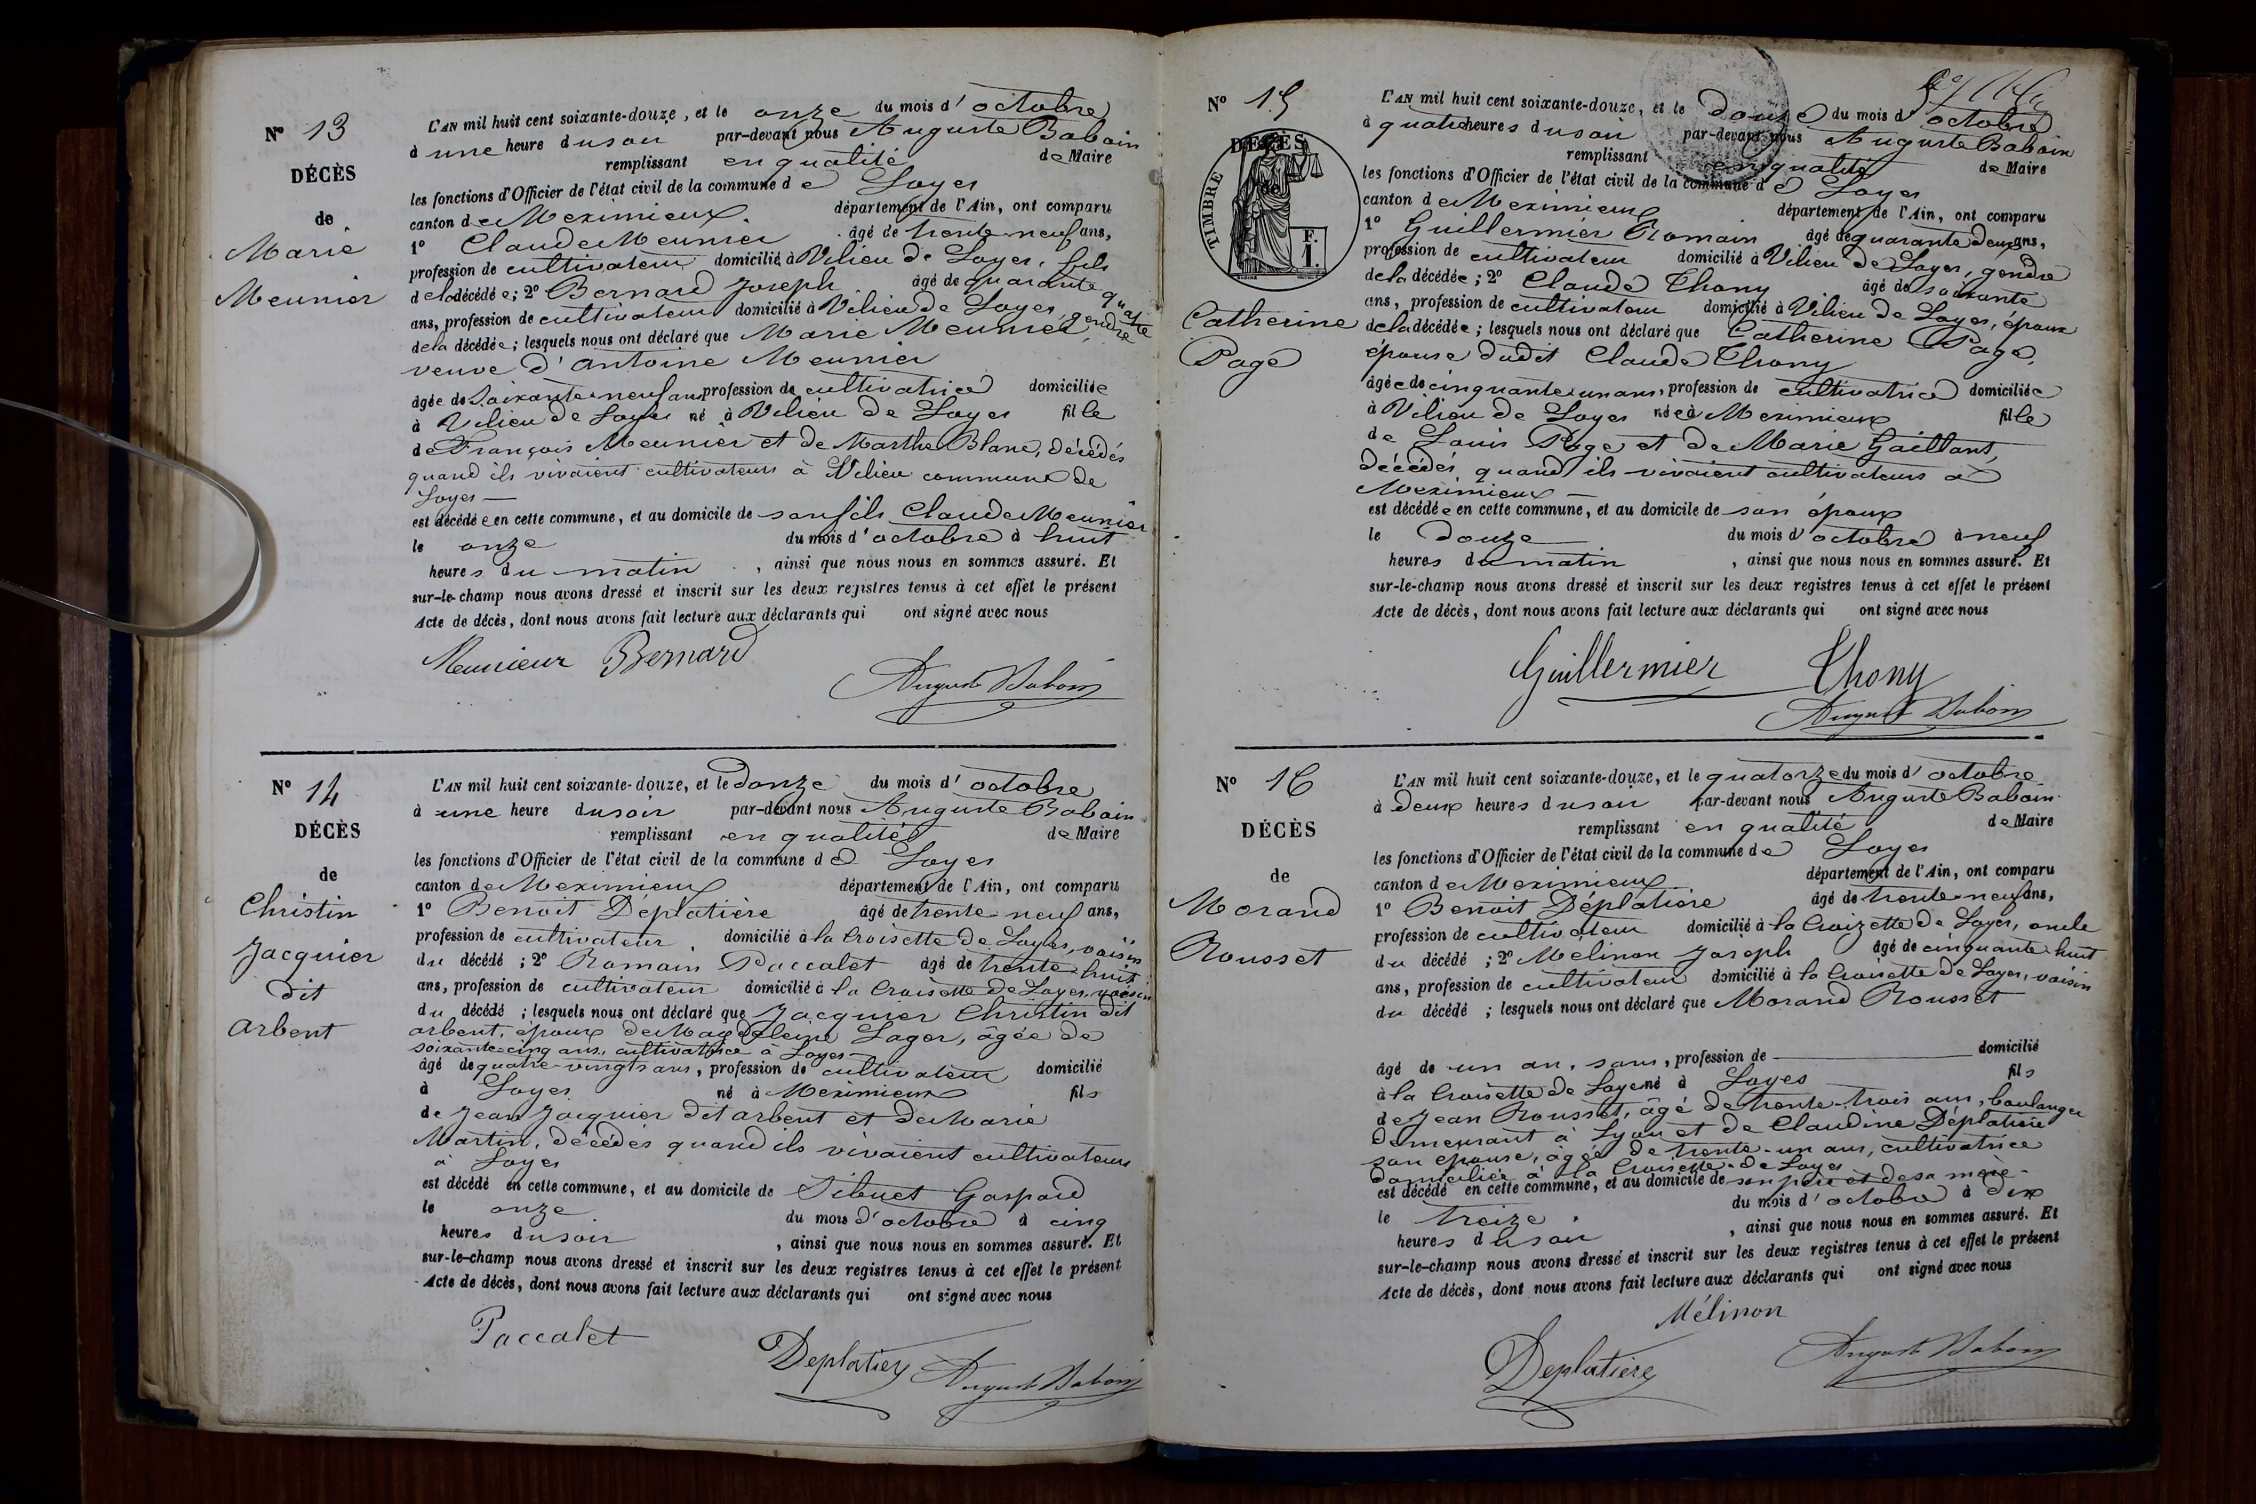 N° 13
DÉCÈS
de
Marie
Meunier
L'AN mil huit cent soixante-douze, et le onze du mois d'octobre
à une heure du soir par-devant nous Auguste Baboin
remplissant en qualité de Maire
les fonctions d'Officier de l'état civil de la commune de Loyes
canton de Meximieux département de l'Ain, ont comparu
1° Claude Meunier âgé de trente-neuf ans,
profession de cultivateur domicilié à Vilieu de Loyes, fils
de la décédée; 2° Bernard Joseph âgé de quarante quatre
ans, profession de cultivateur domicilié à Vilieu de Loyes, gendre
de la décédée; lesquels nous ont déclaré que Marie Meunier,
veuve d'antoine Meunier
âgée de soixante-neuf ans profession de cultivatrice domiciliée
à Vilieu de Loyes né à Vilieu de Loyes fille
de François Meunier et de Marthe Blanc, décédés
quand ils vivaient cultivateurs à Vilieu commune de
Loyes
est décédée en cette commune, et au domicile de son fils Claude Meunier
le onze du mois d'octobre à huit
heures du matin, ainsi que nous nous en sommes assuré. Et
sur-le-champ nous avons dressé et inscrit sur les deux registres tenus à cet effet le présent
Acte de décès, dont nous avons fait lecture aux déclarants qui ont signé avec nous
Meunieur Bernard
Auguste Baboin
N° 14
DÉCÈS
de
Christin
Jacquier
dit
arbent
L'AN mil huit cent soixante-douze, et le douze du mois d'octobre
à une heure du soir par-devant nous Auguste Baboin
remplissant en qualité de Maire
les fonctions d'Officier de l'état civil de la commune de Loyes
canton de Meximieux département de l'Ain, ont comparu
1° Benoit Déplatière âgé de trente-neuf ans,
profession de cultivateur domicilié à la Croisette de Loyes, voisin
du décédé; 2° Romain Paccalet âgé de trente-huit
ans, profession de cultivateur domicilié à la Croisette de Loyes, voisin
du décédé; lesquels nous ont déclaré que Jacquier Christin dit
arbent, époux de Magdeleine Lager, âgée de
soixante-cinq ans, cultivatrice à Loyes
âgé de quatre-vingts ans, profession de cultivateur domicilié
à Loyes né à Meximieux fils
de Jean Jacquier dit arbent et de Marie
Martin, décédés quand ils vivaient cultivateurs
à Loyes
est décédé en cette commune, et au domicile de Sibuet Gaspard
le onze du mois d'octobre à cinq
heures du soir, ainsi que nous nous en sommes assuré. Et
sur-le-champ nous avons dressé et inscrit sur les deux registres tenus à cet effet le présent
Acte de décès, dont nous avons fait lecture aux déclarants qui ont signé avec nous
Paccalet
Deplatière Auguste Baboin
N° 15
DÉCÈS
de
TIMBRE
F.
1.
Catherine
Page
L'AN mil huit cent soixante-douze, et le douze du mois d'octobre
à quatre heures du soir par-devant nous Auguste Baboin
remplissant en qualité de Maire
les fonctions d'Officier de l'état civil de la commune de Loyes
canton de Meximieux département de l'Ain, ont comparu
1° Guillermier Romain âgé de quarante deux ans,
profession de cultivateur domicilié à Vilieu de Loyes, gendre
de la décédée; 2° Claude Thony âgé de soixante
ans, profession de cultivateur domicilié à Vilieu de Loyes, époux
de la décédée; lesquels nous ont déclaré que Catherine Page,
épouse dudit Claude Thony
âgée de cinquante-un ans, profession de cultivatrice domiciliée
à Vilieu de Loyes née à Meximieux fille
de Louis Page et de Marie Gaillant,
décédés quand ils vivaient cultivateurs à
Meximieux
est décédée en cette commune, et au domicile de son époux
le douze du mois d'octobre à neuf
heures du matin, ainsi que nous nous en sommes assuré. Et
sur-le-champ nous avons dressé et inscrit sur les deux registres tenus à cet effet le présent
Acte de décès, dont nous avons fait lecture aux déclarants qui ont signé avec nous
Guillermier Thony
Auguste Baboin
N° 16
DÉCÈS
de
Morand
Rousset
L'AN mil huit cent soixante-douze, et le quatorze du mois d'octobre
à deux heures du soir par-devant nous Auguste Baboin
remplissant en qualité de Maire
les fonctions d'Officier de l'état civil de la commune de Loyes
canton de Meximieux département de l'Ain, ont comparu
1° Benoit Déplatière âgé de trente-neuf ans,
profession de cultivateur domicilié à la Croizette de Loyes, oncle
du décédé; 2° Melinon Joseph âgé de cinquante-huit
ans, profession de cultivateur domicilié à la Croisette de Loyes, voisin
du décédé; lesquels nous ont déclaré que Morand Rousset
âgé de un an, sans, profession de domicilié
à la Croisette de Loyes né à Loyes fils
de Jean Rousset, âgé de trente-trois ans, boulanger
demeurant à Lyon et de Claudine Déplatière
son épouse, âgée de trente-un ans, cultivatrice
domiciliée à la Croisette de Loyes
est décédé en cette commune, et au domicile de son père et de sa mère
le treize du mois d'octobre à dix
heures du soir, ainsi que nous nous en sommes assuré. Et
sur-le-champ nous avons dressé et inscrit sur les deux registres tenus à cet effet le présent
Acte de décès, dont nous avons fait lecture aux déclarants qui ont signé avec nous
Mélinon
Deplatière Auguste Baboin